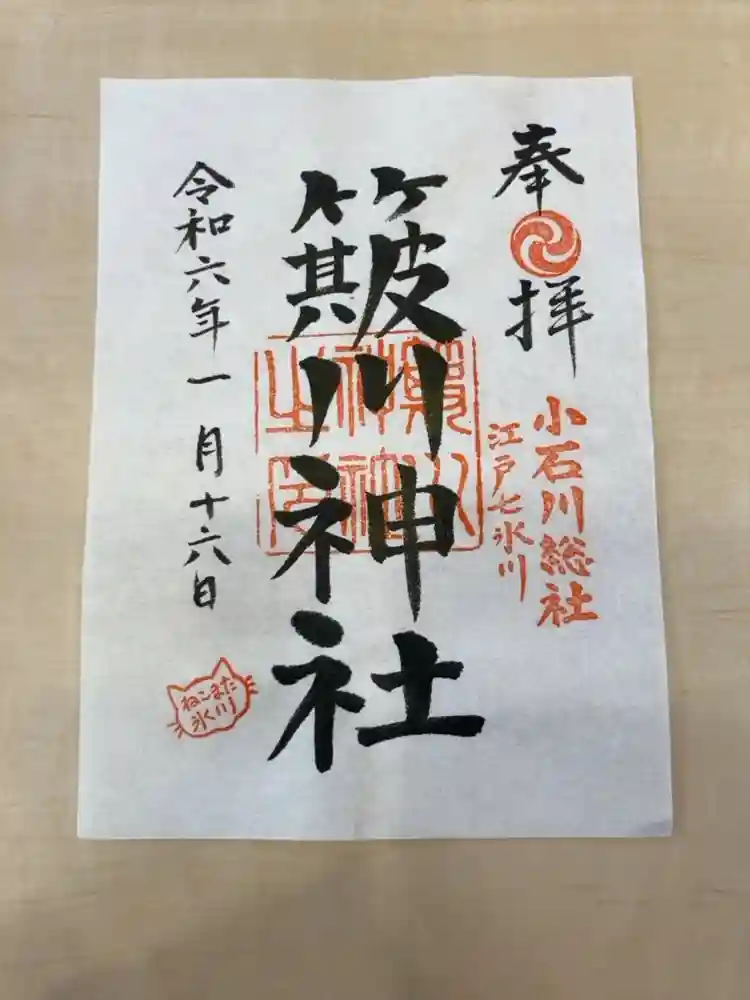 奉拝
小石川総社
江戸七氷川
簸川神社
簸川神社之印
令和六年一月十六日
ねこまた
氷川